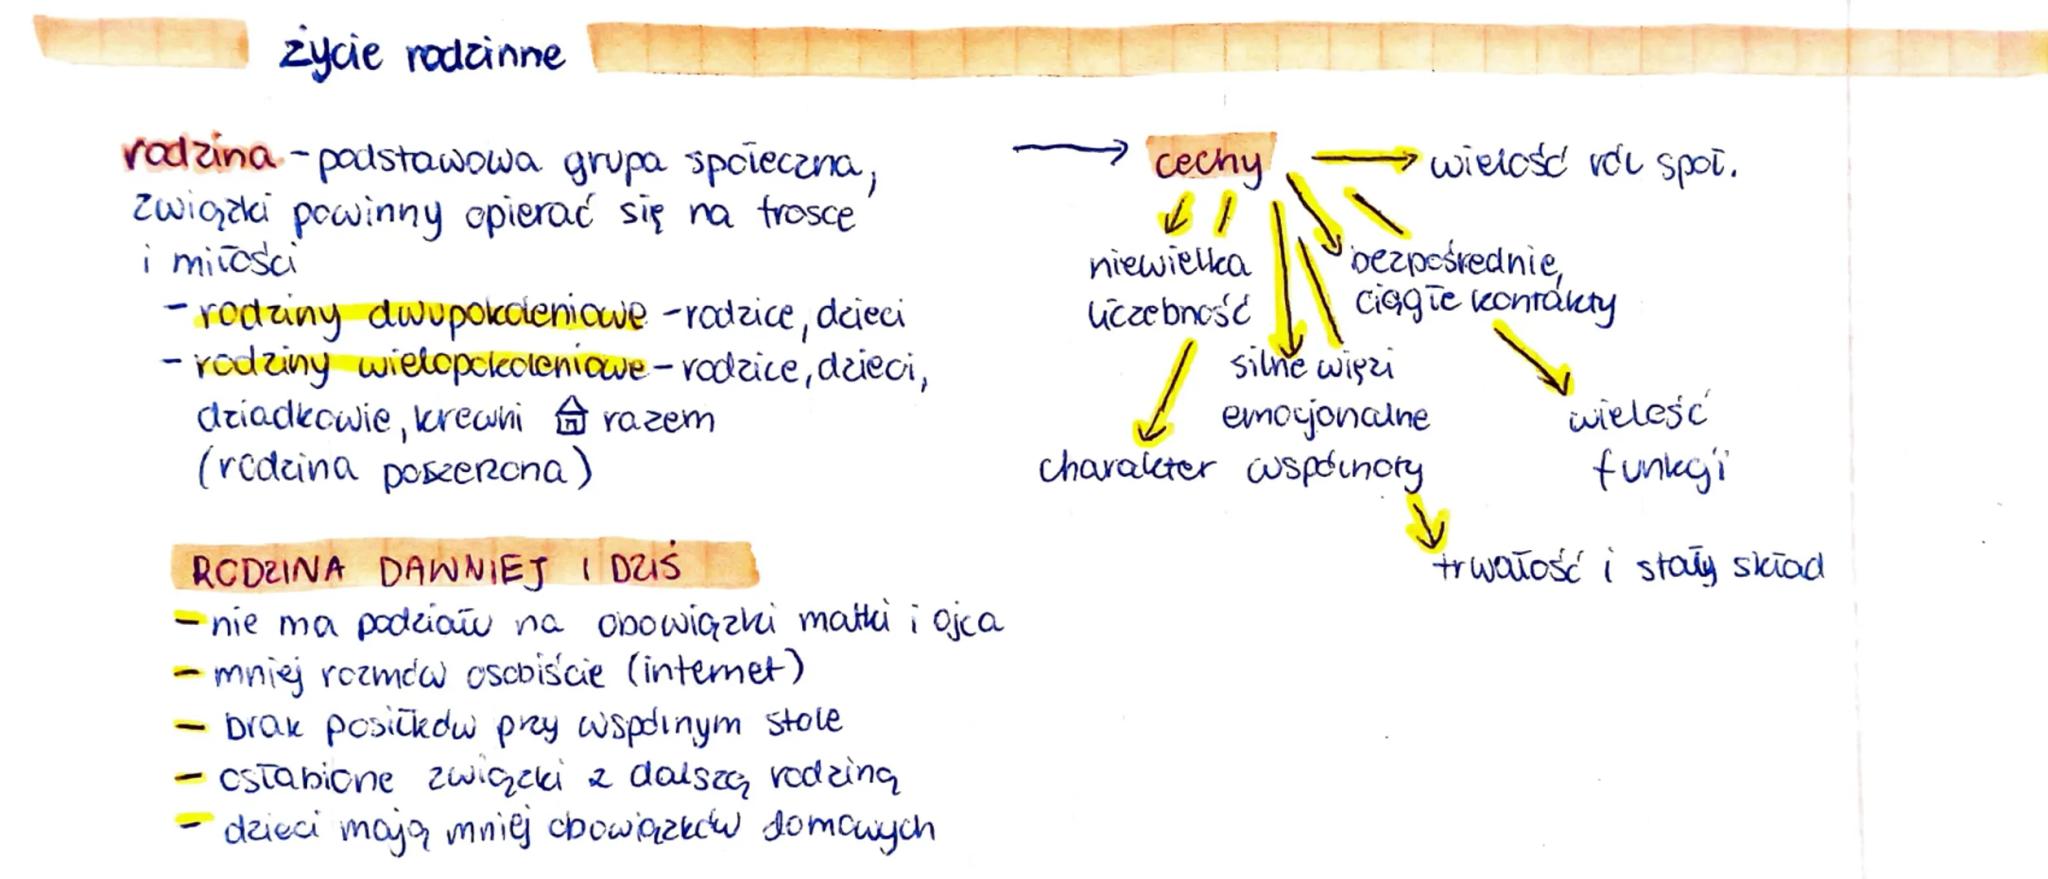 życie rodzinne
rodzina - podstawowa grupa społeczna,
związki powinny opierać się na trosce
i miłości
- rodziny dwupokoleniowe - rodzice, dzieci
- rodziny wielopokoleniowe - rodzice, dzieci,
dziadkowie, krewni razem
(rodzina poszerzona)
cechy
wielość ról społ.
niewielka
liczebność
bezpośrednie,
ciągłe kontakty
silne więzi
emocjonalne
wielość
funkcji
charakter wspólnoty
trwałość i stały skład
RODZINA DAWNIEJ I DZIŚ
- nie ma podziału na obowiązki matki i ojca
- mniej rozmów osobiście (internet)
- brak posiłków przy wspólnym stole
- osłabione związki z dalszą rodziną
- dzieci mają mniej obowiązków domowych